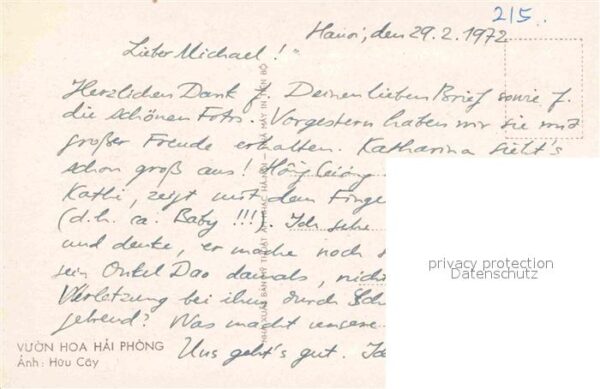 215.
Hanoi, den 29.2.1972
Lieber Michael!
Herzlichen Dank f. Deinen lieben Brief sowie f.
die schönen Fotos. Vorgestern haben wir sie mit
großer Freude erhalten. Katharina sieht's
schon groß aus!
Kathi, zeigt mit dem Finge
(d.h. ca. Baby !!!). Ich sehe
und denke, er mache noch s
sein Onkel Dao damals, nich
Verletzung bei ihm durch Sch
gebend? Was macht unsere
Uns geht's gut. Ich
VƯỜN HOA HẢI PHÒNG
Ảnh: Hữu Cấy
privacy protection
Datenschutz